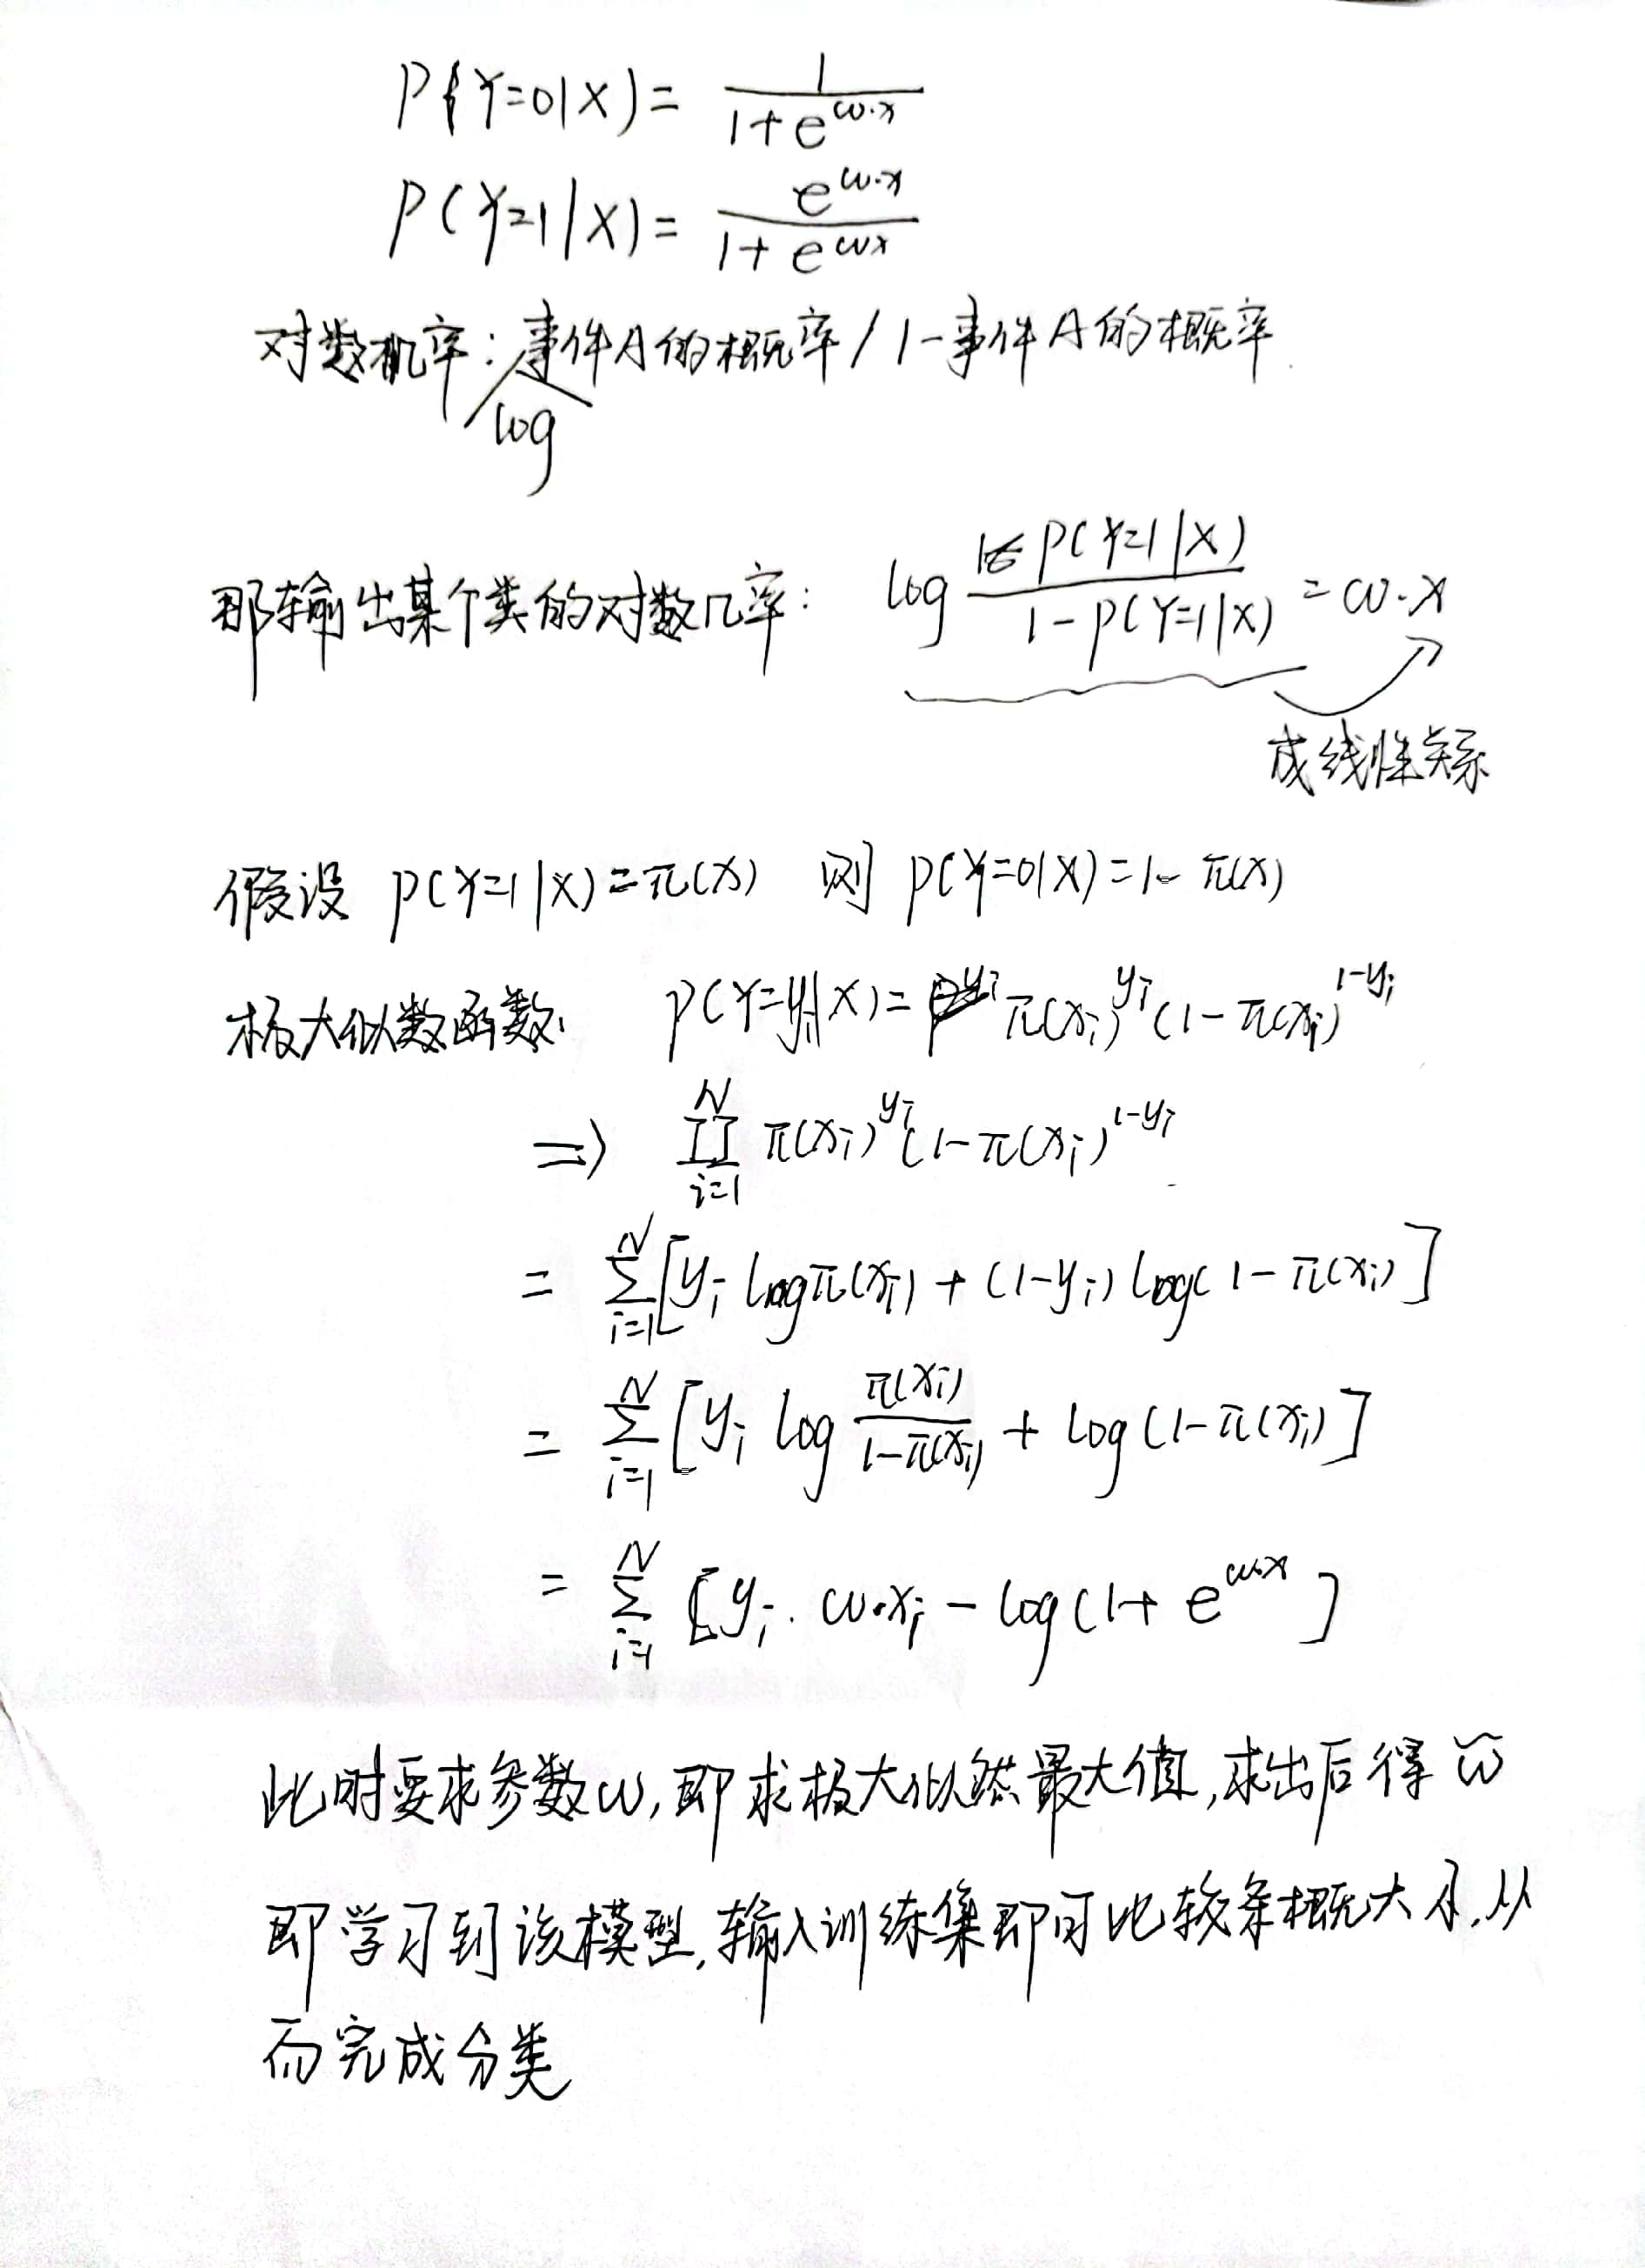 P(Y=0|X) = 1/(1+e^{ω·x})
P(Y=1|X) = e^{ω·x}/(1+e^{ωx})
对数机率:事件A的概率/1-事件A的概率
log
那输出某个类的对数几率: log P(Y=1|X)/(1-P(Y=1|X)) = ω·x
成线性关系
假设 P(Y=1|X)=π(x) 则 P(Y=0|X)=1-π(x)
极大似数函数: P(Y=y_i|X)= π(x_i)^{y_i}(1-π(x_i)^{1-y_i}
=> ∏_{i=1}^{N} π(x_i)^{y_i}(1-π(x_i)^{1-y_i}
= Σ_{i=1}^{N}[y_i logπ(x_i)+(1-y_i)log(1-π(x_i)]
= Σ_{i=1}^{N}[y_i log π(x_i)/(1-π(x_i)) + log(1-π(x_i)]
= Σ_{i=1}^{N}[y_i·ω·x_i - log(1+e^{ω·x}]
此时要求参数ω,即求极大似然最大值,求出后得 ω̃
即学习到该模型,输入训练集即可比较条概大小,从
而完成分类